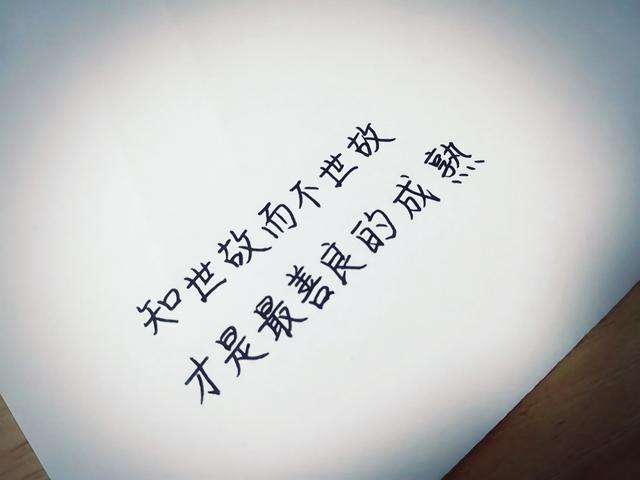 知世故而不世故
才是最善良的成熟